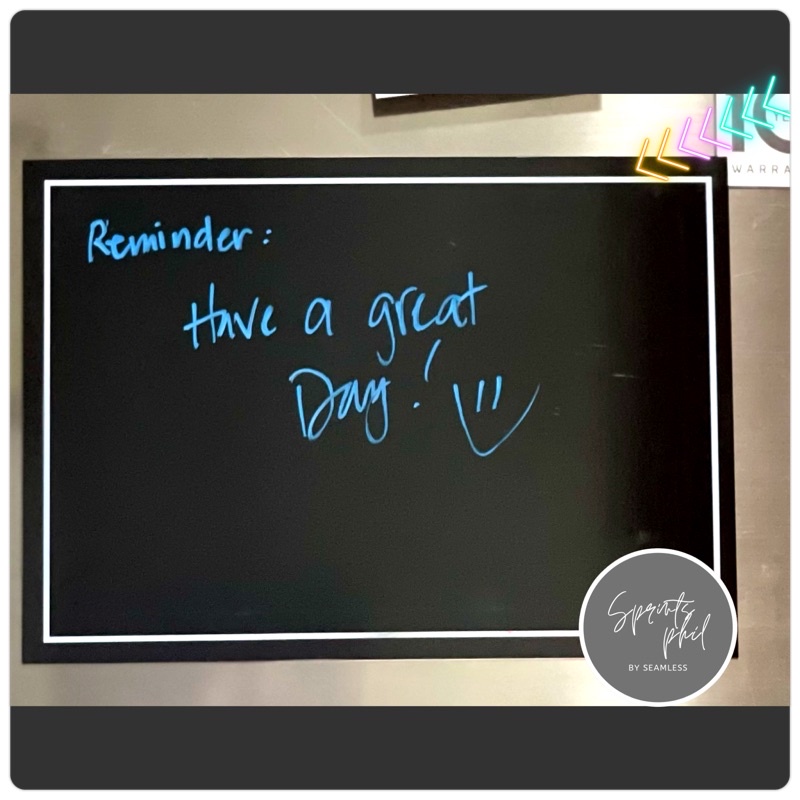 Reminder:
Have a great
Day!
WARRA
Sprints
phil
BY SEAMLESS